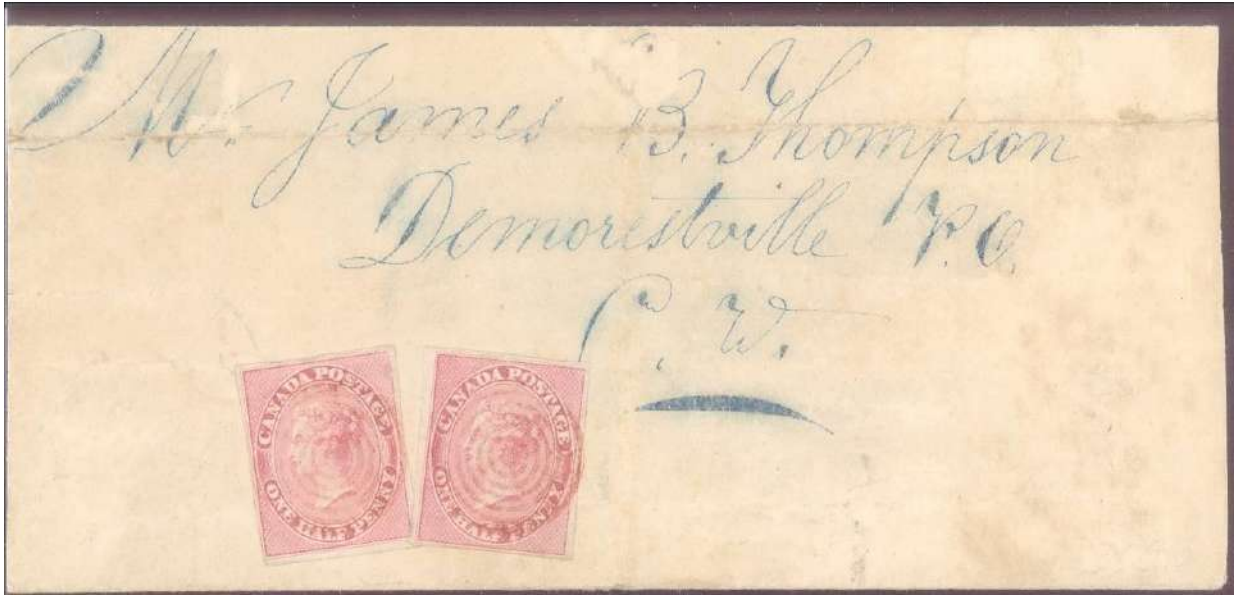 Mr. James B. Thompson
Demorestville P.O.
C. W.
CANADA POSTAGE
ONE HALF PENNY
CANADA POSTAGE
ONE HALF PENNY